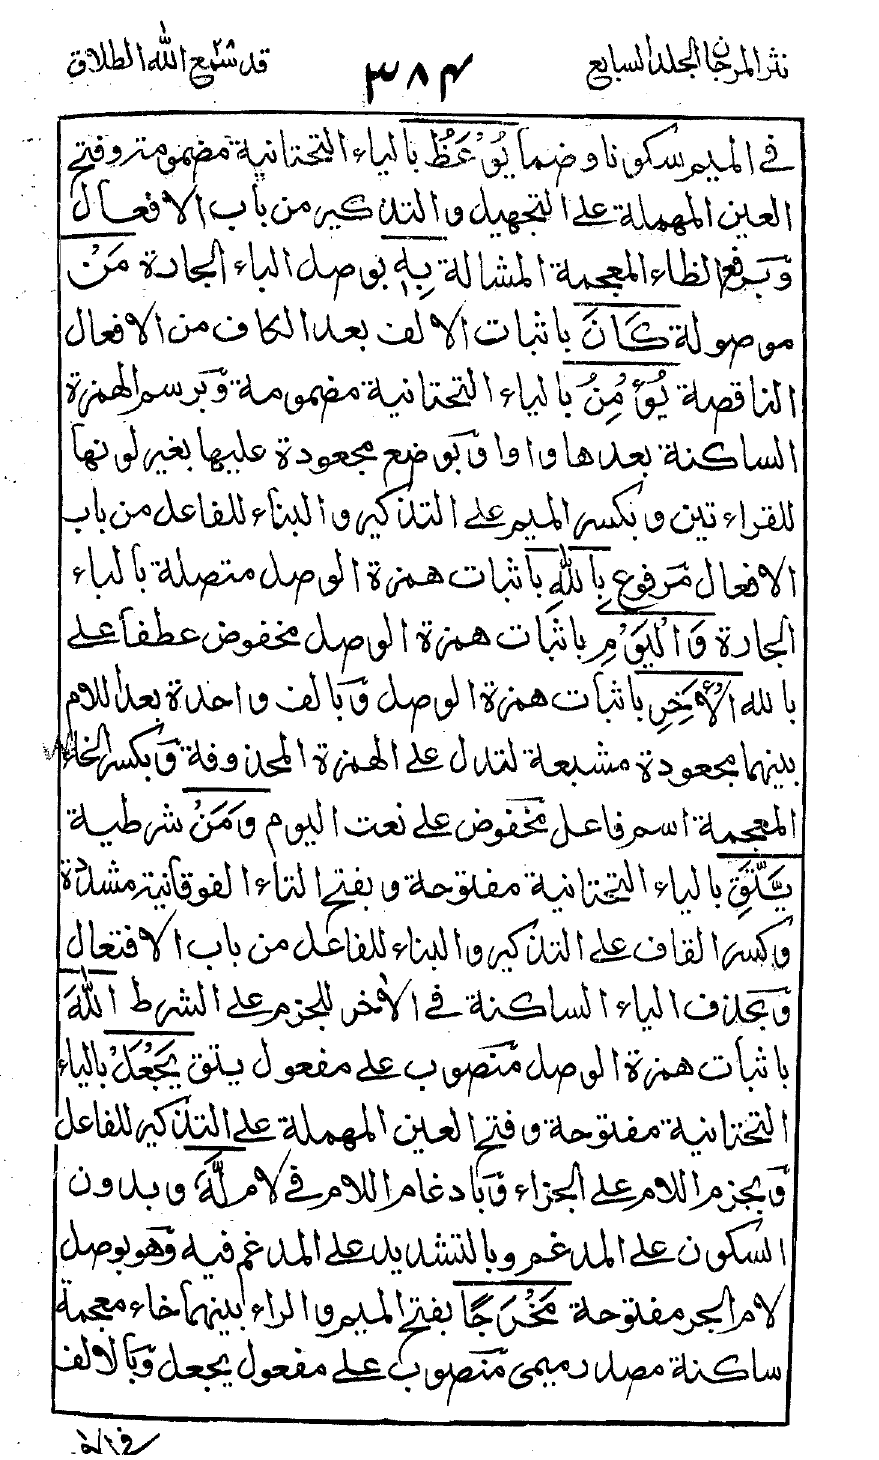 نثر المرجان الجلد السابع
٣٨٤
قد سمع الله الطلاق
في الميم سكونا وضما يُوْعَظُ بالياء التحتانية مضمومة وفتح
العين المهملة على التجهيل والتذكير من باب الافعال
وبرفع الظاء المعجمة المشالة بِهٖ بوصل الباء الجارة مَنْ
موصولة كَانَ باثبات الالف بعد الكاف من الافعال
الناقصة يُؤْمِنُ بالياء التحتانية مضمومة وبرسم الهمزة
الساكنة بعدها واوا وبوضع مجعودة عليها بغير لونها
للقراءتين وبكسر الميم على التذكير والبناء للفاعل من باب
الافعال مرفوع بِاللّٰهِ باثبات همزة الوصل متصلة بالباء
الجارة وَالْيَوْمِ باثبات همزة الوصل مخفوض عطفا على
بالله الْاٰخِرِ باثبات همزة الوصل وبالف واحدة بعد اللام
بينهما مجعودة مشبعة لتدل على الهمزة المحذوفة وبكسر الخاء
المعجمة اسم فاعل مخفوض على نعت اليوم وَمَنْ شرطية
يَّتَّقِ بالياء التحتانية مفتوحة وبفتح التاء الفوقانية مشددة
وكسر القاف على التذكير والبناء للفاعل من باب الافتعال
وبحذف الياء الساكنة في الاٰخر للجزم على الشرط اللّٰهَ
باثبات همزة الوصل منصوب على مفعول يتق يَجْعَلْ بالياء
التحتانية مفتوحة وفتح العين المهملة على التذكير للفاعل
وبجزم اللام على الجزاء وبادغام اللام في لام لَّهٗ وبدون
السكون على المدغم وبالتشديد على المدغم فيه وهو بوصل
لام الجر مفتوحة مَخْرَجًا بفتح الميم والراء بينهما خاء معجمة
ساكنة مصدر ميمى منصوب على مفعول يجعل وبالالف